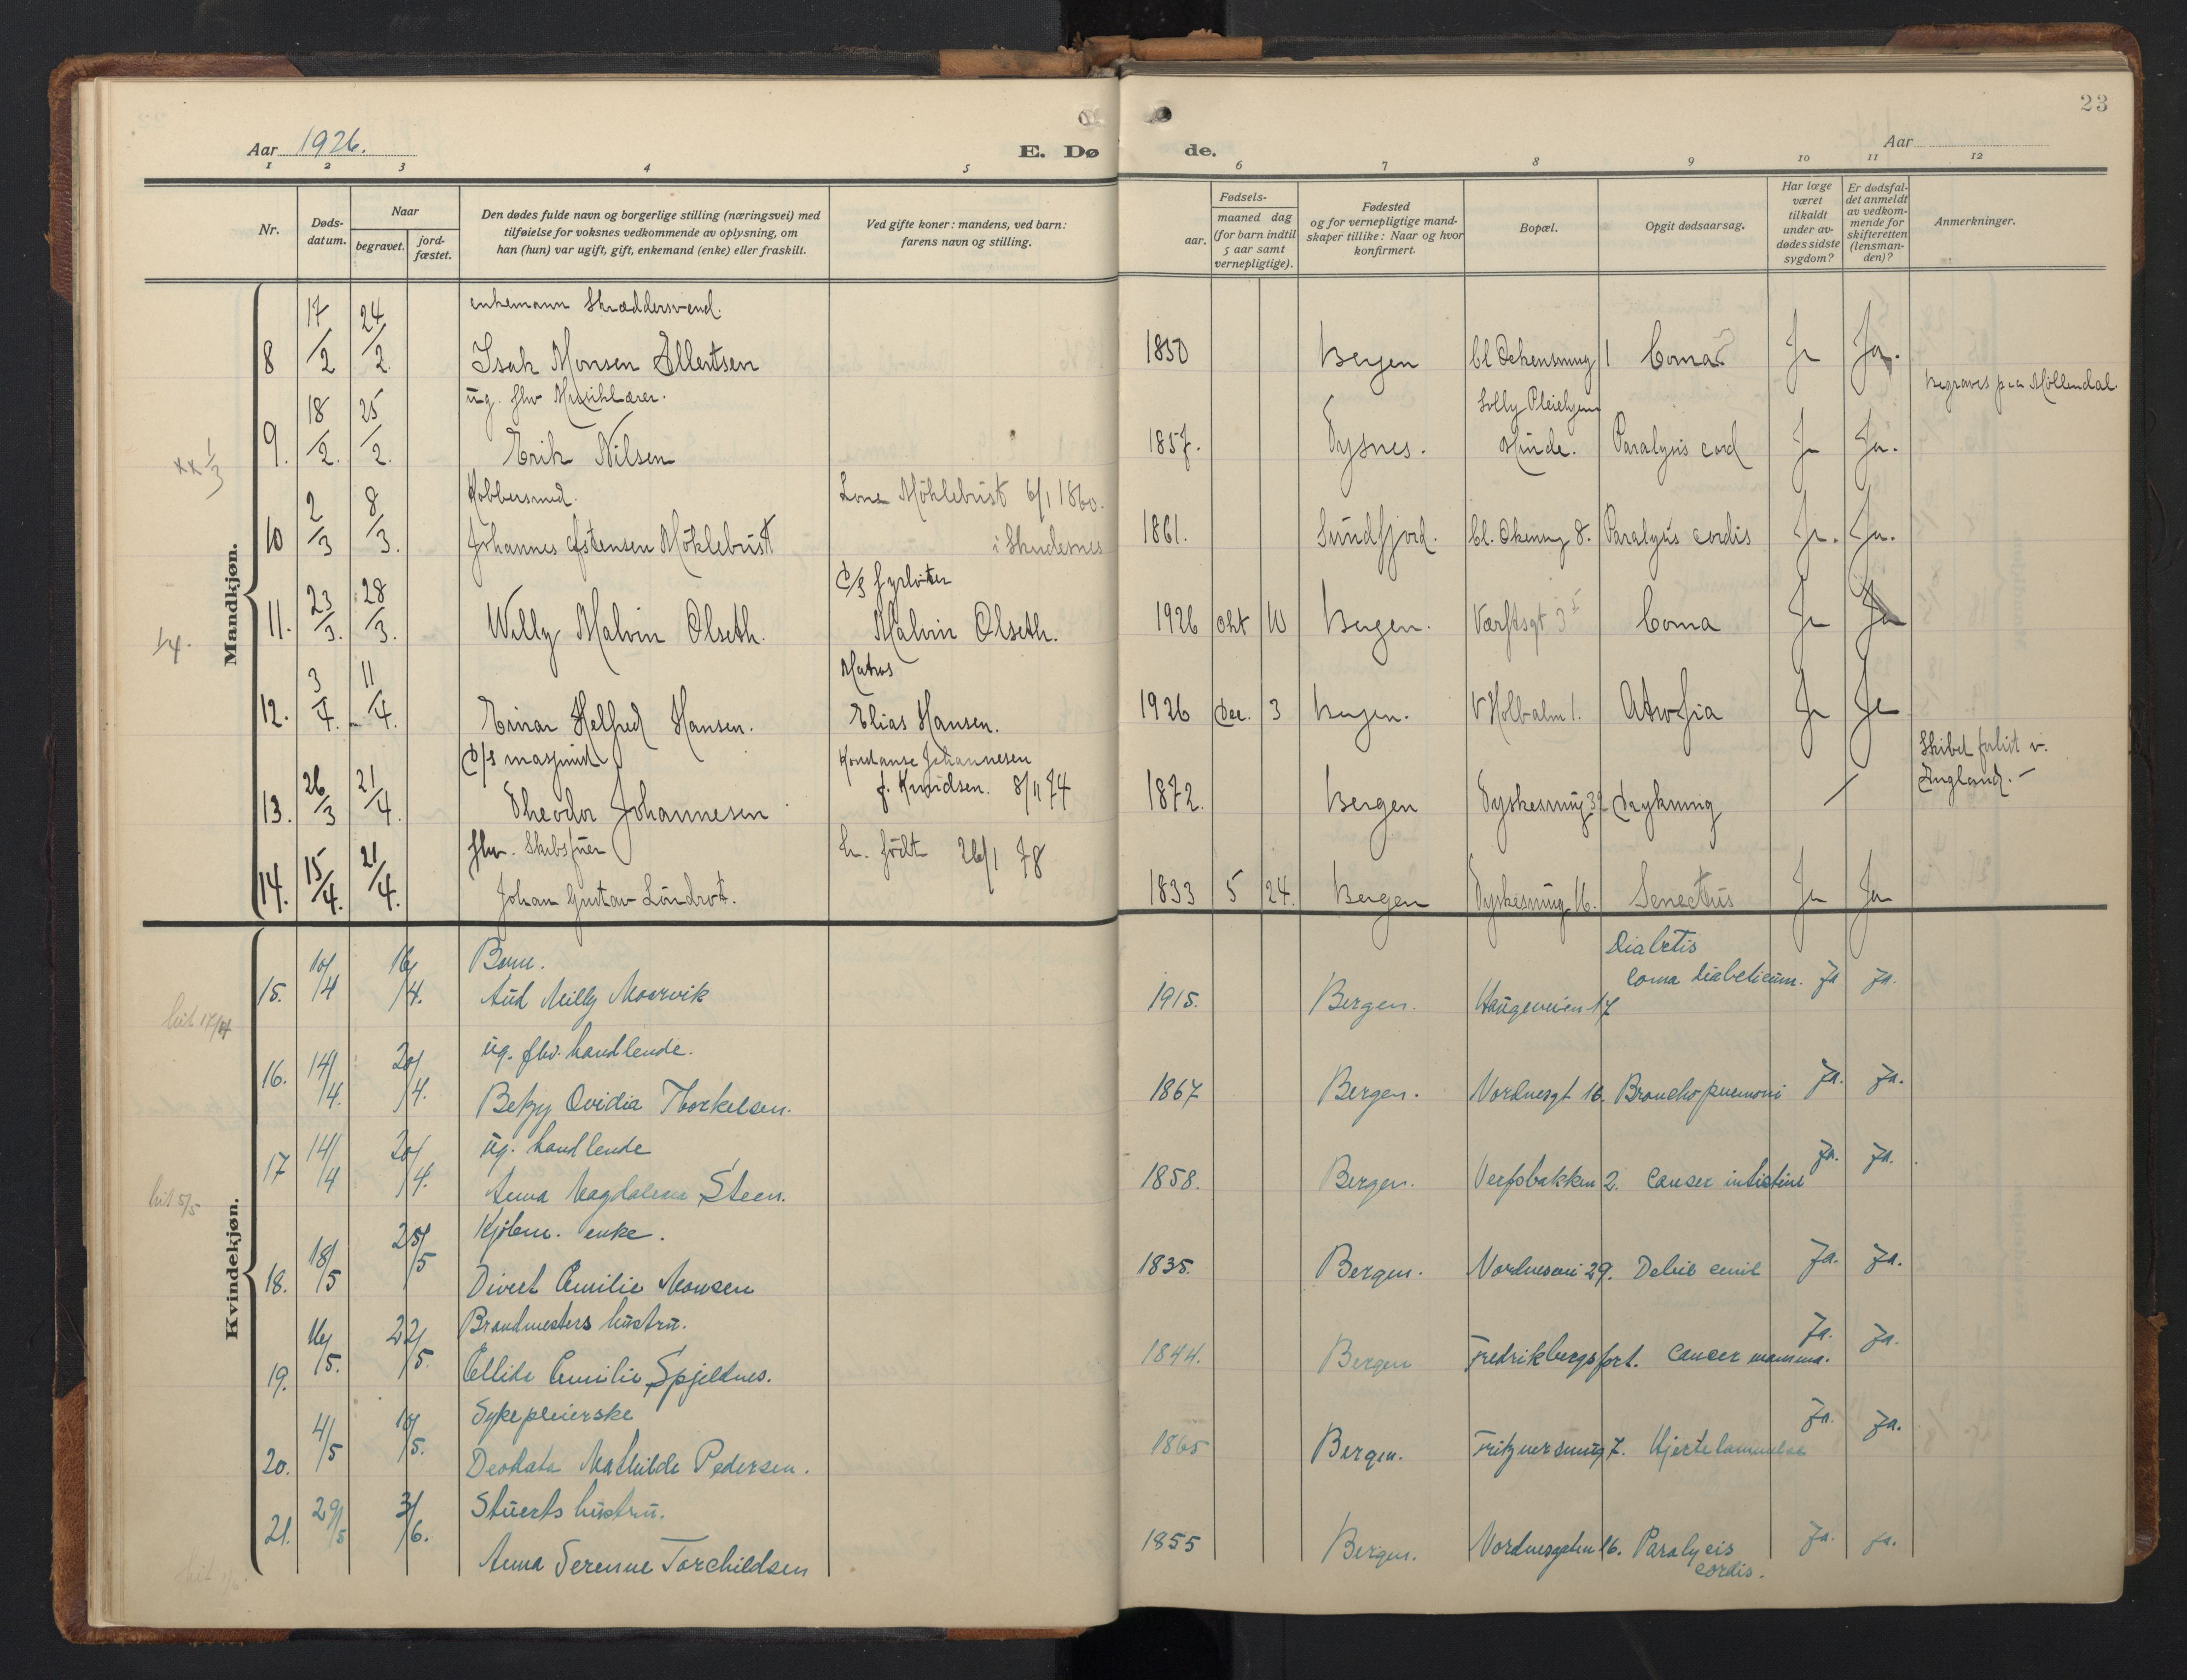 23
Aar 1926.
E. Døde.
Aar
1 2 3 4 5 6 7 8 9 10 11 12
Nr.
Dødsdatum.
Naar
begravet.
jordfæstet.
Den dødes fulde navn og borgerlige stilling (næringsvei) med
tilføielse for voksnes vedkommende av oplysning, om
han (hun) var ugift, gift, enkemand (enke) eller fraskilt.
Ved gifte koner: mandens, ved barn:
farens navn og stilling.
Fødsels-
aar.
maaned dag
(for barn indtil
5 aar samt
vernepligtige).
Fødested
og for vernepligtige mand-
skaper tillike: Naar og hvor
konfirmert.
Bopæl.
Opgit dødsaarsag.
Har læge
været
tilkaldt
under av-
dødes sidste
sygdom?
Er dødsfal-
det anmeldt
av vedkom-
mende for
skifteretten
(lensman-
den)?
Anmerkninger.
Mandkjøn.
enkemann Skræddersvend.
8 17/2 24/2 Isak Monsen Ellertsen 1850 Bergen 1 Coma Ja Ja.
Begraves paa Möllendal.
ug. fhv Musiklærer.
Solly Pleiehjem
9. 18/2. 25/2. Erik Nilsen 1857. Tysnes. Minde. Paralysis cord Ja Ja.
Kobbersmed. Lona Möklebust 6/1 1860.
10 2/3 8/3. Johannes Östensen Möklebust i Skudesnes 1861. Sundfjord. 8. Paralysis cordis Ja. Ja.
D/S fyrböter
11. 23/3. 28/3. Willy Malvin Olseth. Malvin Olseth. 1926 okt 10 Bergen. Værftsgt 3 Coma Ja Ja
14.
Matros
12. 3/4. 11/4. Einar Helfred Hansen. Elias Hansen. 1926 Dec. 3 Bergen. V Holbalm 1. Atrofia Ja Ja
D/S maskinist Konstanse Johannesen
Skibet forlist v.
England.
13. 26/3 21/4. Theodor Johannesen f. Knudsen. 8/11 74 1872. Bergen Tyskesmug 39 Drukning /
fhv. Skibsfører h. født 26/1 78
14. 15/4. 21/4. Johan Gustav Löndrot. 1833 5 24. Bergen Tyskesmug 16. Senectus Ja Ja
Kvindekjøn.
Barn. Diabetis
15. 10/4 16/4. Aud Milly Moorvik 1915. Bergen. Haugeveien 17 Coma diabeticum. Ja Ja.
ug. fhv. handlende.
16. 14/4. 20/4. Betzy Ovidia Thorkelsen. 1867 Bergen. Nordnesgt 16. Bronchopnemoni Ja. Ja.
ug. handlende
17 14/4 20/4. Anna Magdalena Steen. 1858. Bergen. Verfsbakken 2. Cancer intistine Ja. Ja.
Kjøbm. enke.
18. 18/5 25/5 Divert Emilie Monsen 1835. Bergen. Nordnesvei 29. Debil senil Ja. Ja.
Brandmesters hustru.
19. 16/5. 22/5. Ellida Emilie Spjeldnes. 1844. Bergen Fredrikbergsfort. Cancer mamma. Ja. Ja.
Sykepleierske
20. 4/5 10/5. Deodata Mathilde Pedersen. 1865 Bergen. Fritznersmug 7. Hjertelammelse Ja. Ja.
Stuerts hustru.
21. 29/5 3/6. Anna Serenne Torchildsen 1855 Bergen. Nordnesgaten 16. Paralycis Ja. Ja.
cordis.